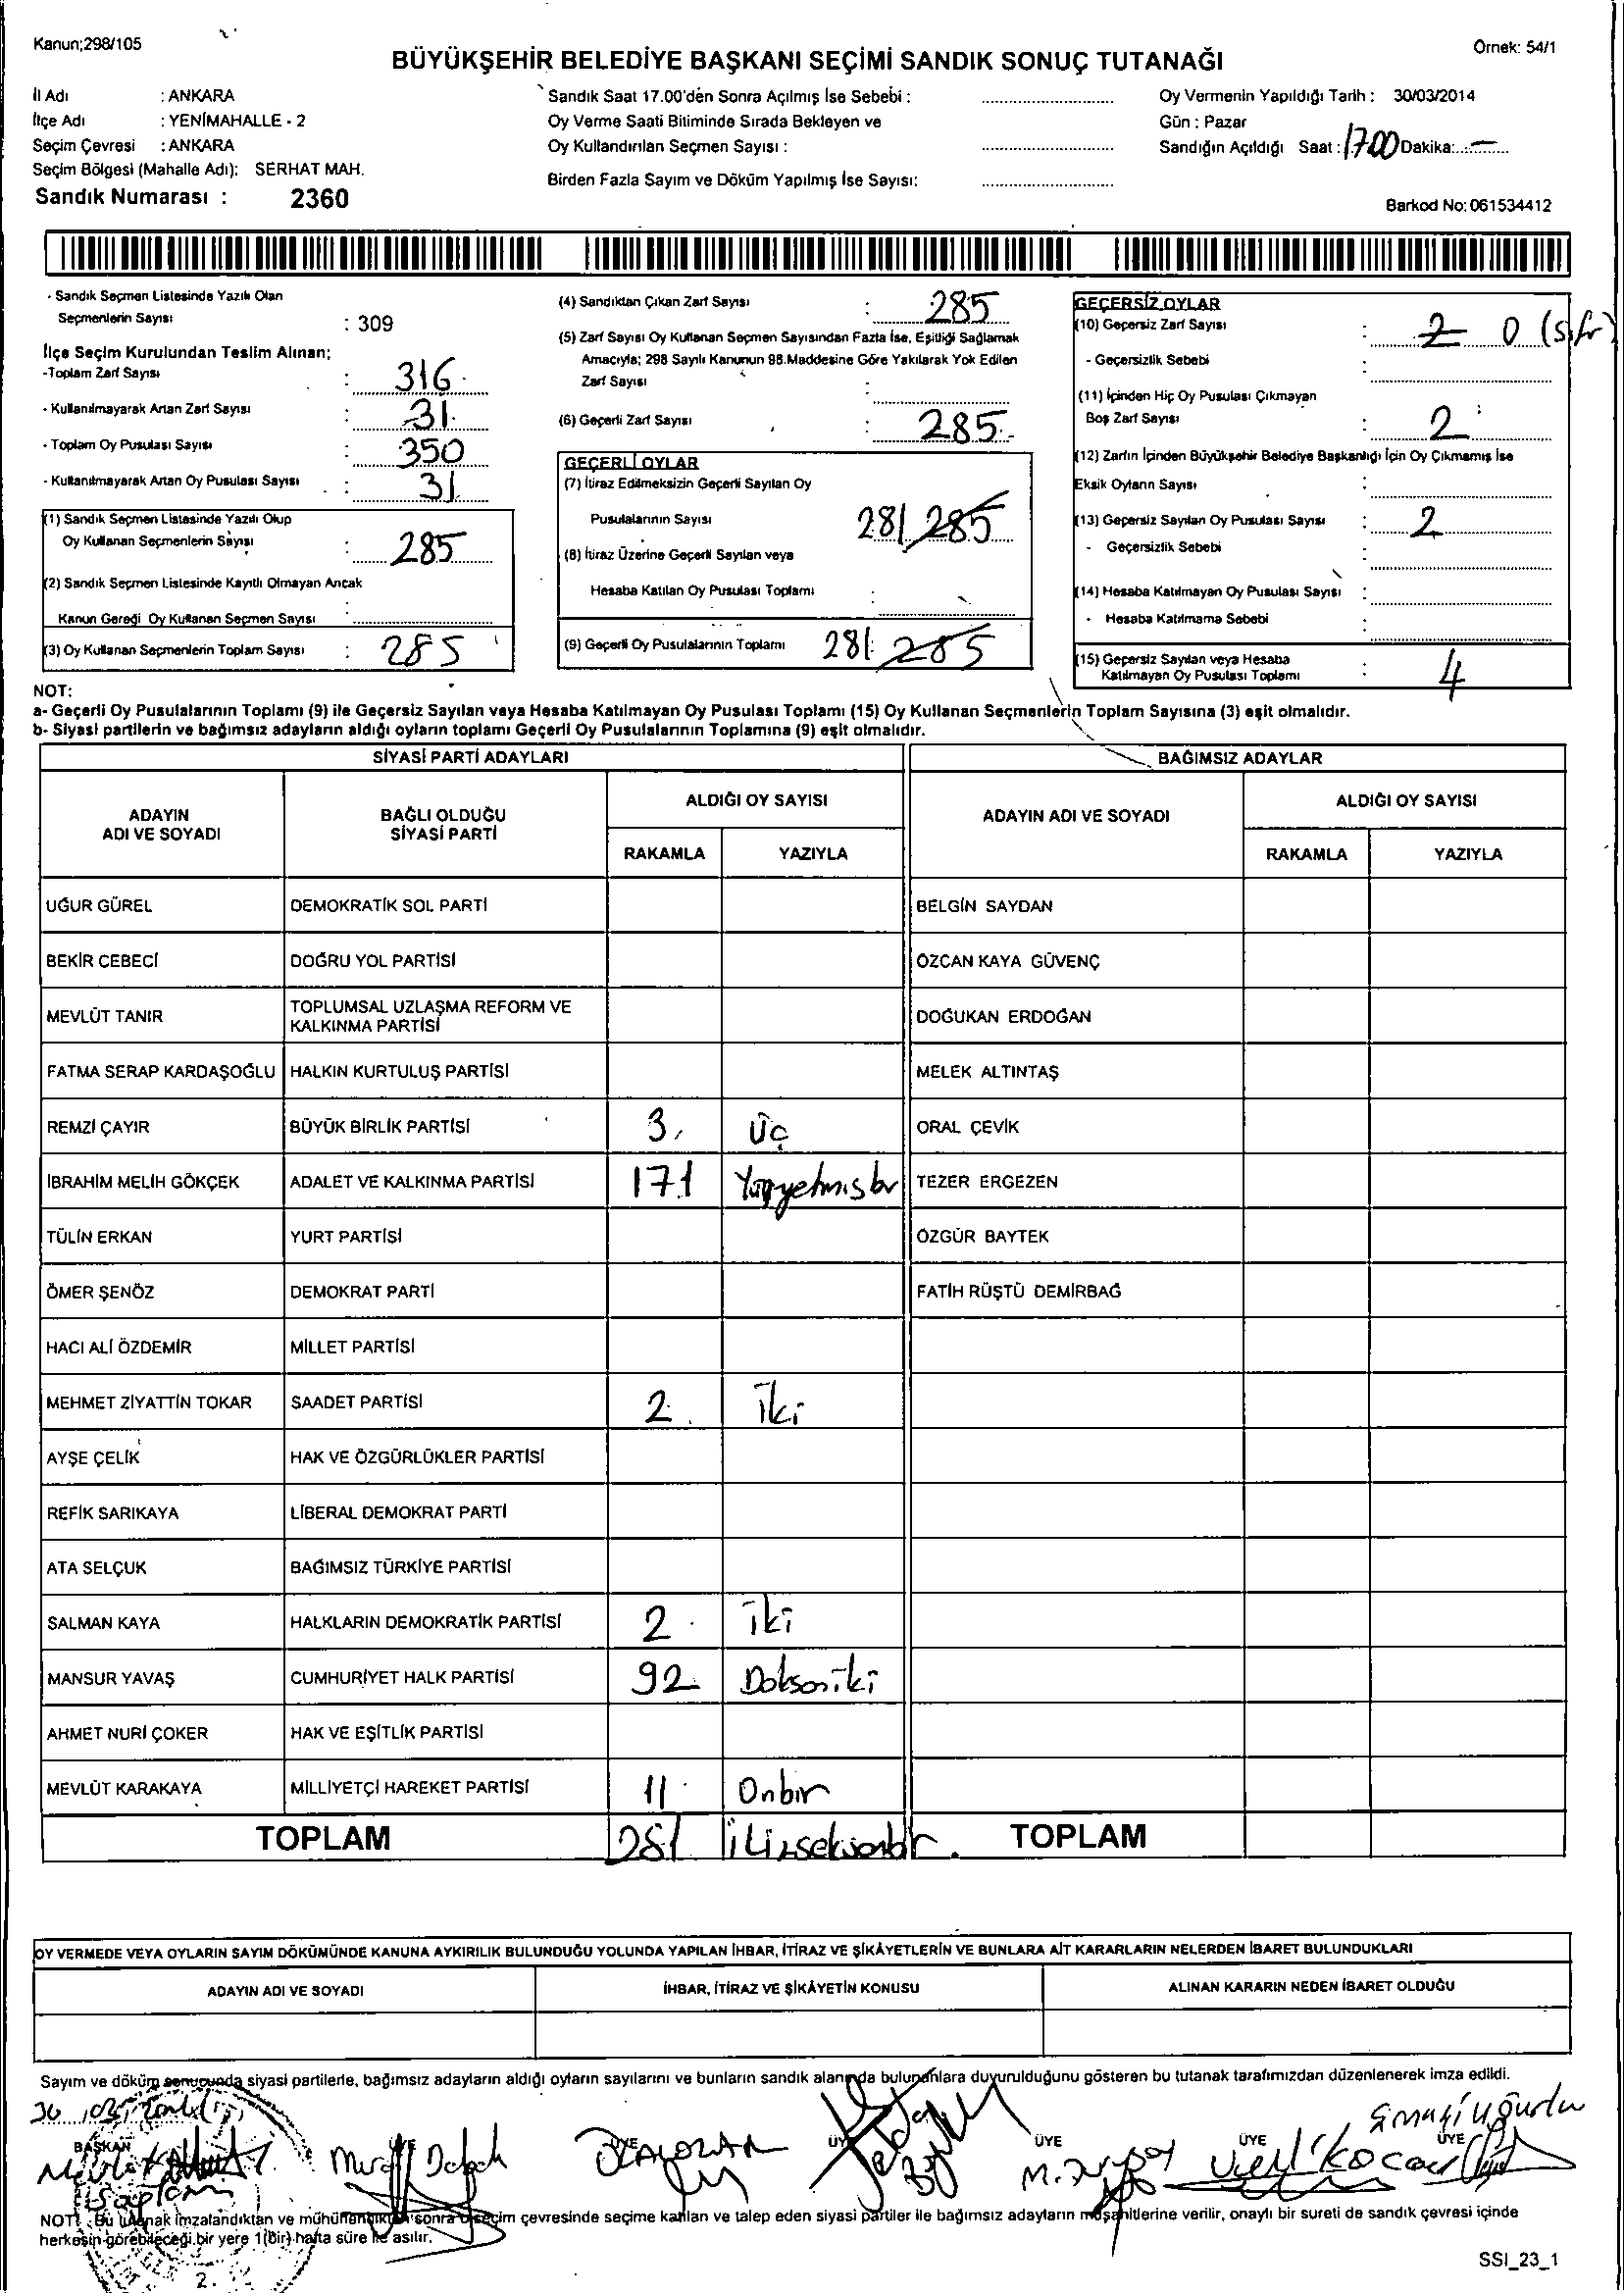 Kanun;298/105
Örnek: 54/1
BÜYÜKŞEHİR BELEDİYE BAŞKANI SEÇİMİ SANDIK SONUÇ TUTANAĞI
İl Adı : ANKARA
İlçe Adı : YENİMAHALLE - 2
Seçim Çevresi : ANKARA
Seçim Bölgesi (Mahalle Adı): SERHAT MAH.
Sandık Numarası : 2360
Sandık Saat 17.00'den Sonra Açılmış İse Sebebi :
Oy Verme Saati Bitiminde Sırada Bekleyen ve
Oy Kullandırılan Seçmen Sayısı :
Birden Fazla Sayım ve Döküm Yapılmış İse Sayısı:
Oy Vermenin Yapıldığı Tarih : 30/03/2014
Gün : Pazar
Sandığın Açıldığı Saat : 1700 Dakika: —
Barkod No: 061534412
- Sandık Seçmen Listesinde Yazılı Olan
Seçmenlerin Sayısı : 309
İlçe Seçim Kurulundan Teslim Alınan;
-Toplam Zarf Sayısı : 316
- Kullanılmayarak Artan Zarf Sayısı : 31
- Toplam Oy Pusulası Sayısı : 350
- Kullanılmayarak Artan Oy Pusulası Sayısı : 31
(1) Sandık Seçmen Listesinde Yazılı Olup
Oy Kullanan Seçmenlerin Sayısı : 285
(2) Sandık Seçmen Listesinde Kayıtlı Olmayan Ancak
Kanun Gereği Oy Kullanan Seçmen Sayısı :
(3) Oy Kullanan Seçmenlerin Toplam Sayısı : 285
(4) Sandıktan Çıkan Zarf Sayısı : 285
(5) Zarf Sayısı Oy Kullanan Seçmen Sayısından Fazla İse, Eşitliği Sağlamak
Amacıyla; 298 Sayılı Kanunun 98.Maddesine Göre Yakılarak Yok Edilen
Zarf Sayısı :
(6) Geçerli Zarf Sayısı : 285
GEÇERLİ OYLAR
(7) İtiraz Edilmeksizin Geçerli Sayılan Oy
Pusulalarının Sayısı 281 285
(8) İtiraz Üzerine Geçerli Sayılan veya
Hesaba Katılan Oy Pusulası Toplamı :
(9) Geçerli Oy Pusulalarının Toplamı 281 285
GEÇERSİZ OYLAR
(10) Geçersiz Zarf Sayısı : 2 0 (sıfır)
- Geçersizlik Sebebi :
(11) İçinden Hiç Oy Pusulası Çıkmayan
Boş Zarf Sayısı : 2
(12) Zarfın İçinden Büyükşehir Belediye Başkanlığı İçin Oy Çıkmamış İse
Eksik Oyların Sayısı :
(13) Geçersiz Sayılan Oy Pusulası Sayısı : 2
- Geçersizlik Sebebi :
(14) Hesaba Katılmayan Oy Pusulası Sayısı :
- Hesaba Katılmama Sebebi :
(15) Geçersiz Sayılan veya Hesaba
Katılmayan Oy Pusulası Toplamı : 4
NOT:
a- Geçerli Oy Pusulalarının Toplamı (9) ile Geçersiz Sayılan veya Hesaba Katılmayan Oy Pusulası Toplamı (15) Oy Kullanan Seçmenlerin Toplam Sayısına (3) eşit olmalıdır.
b- Siyasi partilerin ve bağımsız adayların aldığı oyların toplamı Geçerli Oy Pusulalarının Toplamına (9) eşit olmalıdır.
SİYASİ PARTİ ADAYLARI BAĞIMSIZ ADAYLAR
ADAYIN ADI VE SOYADI
BAĞLI OLDUĞU SİYASİ PARTİ
ALDIĞI OY SAYISI
RAKAMLA YAZIYLA
ADAYIN ADI VE SOYADI
ALDIĞI OY SAYISI
RAKAMLA YAZIYLA
UĞUR GÜREL DEMOKRATİK SOL PARTİ BELGİN SAYDAN
BEKİR CEBECİ DOĞRU YOL PARTİSİ ÖZCAN KAYA GÜVENÇ
MEVLÜT TANIR TOPLUMSAL UZLAŞMA REFORM VE KALKINMA PARTİSİ DOĞUKAN ERDOĞAN
FATMA SERAP KARDAŞOĞLU HALKIN KURTULUŞ PARTİSİ MELEK ALTINTAŞ
REMZİ ÇAYIR BÜYÜK BİRLİK PARTİSİ 3 Üç ORAL ÇEVİK
İBRAHİM MELİH GÖKÇEK ADALET VE KALKINMA PARTİSİ 171 Yüzyetmişbr TEZER ERGEZEN
TÜLİN ERKAN YURT PARTİSİ ÖZGÜR BAYTEK
ÖMER ŞENÖZ DEMOKRAT PARTİ FATİH RÜŞTÜ DEMİRBAĞ
HACI ALİ ÖZDEMİR MİLLET PARTİSİ
MEHMET ZİYATTİN TOKAR SAADET PARTİSİ 2 İki
AYŞE ÇELİK HAK VE ÖZGÜRLÜKLER PARTİSİ
REFİK SARIKAYA LİBERAL DEMOKRAT PARTİ
ATA SELÇUK BAĞIMSIZ TÜRKİYE PARTİSİ
SALMAN KAYA HALKLARIN DEMOKRATİK PARTİSİ 2 iki
MANSUR YAVAŞ CUMHURİYET HALK PARTİSİ 92 Doksaniki
AHMET NURİ ÇOKER HAK VE EŞİTLİK PARTİSİ
MEVLÜT KARAKAYA MİLLİYETÇİ HAREKET PARTİSİ 11 Onbir
TOPLAM 281 ikizseksenbir. TOPLAM
OY VERMEDE VEYA OYLARIN SAYIM DÖKÜMÜNDE KANUNA AYKIRILIK BULUNDUĞU YOLUNDA YAPILAN İHBAR, İTİRAZ VE ŞİKÂYETLERİN VE BUNLARA AİT KARARLARIN NELERDEN İBARET BULUNDUKLARI
ADAYIN ADI VE SOYADI İHBAR, İTİRAZ VE ŞİKÂYETİN KONUSU ALINAN KARARIN NEDEN İBARET OLDUĞU
Sayım ve döküm sonucunda siyasi partilerle, bağımsız adayların aldığı oyların sayılarını ve bunların sandık alanında bulunanlara duyurulduğunu gösteren bu tutanak tarafımızdan düzenlenerek imza edildi.
BAŞKAN ÜYE ÜYE ÜYE ÜYE ÜYE ÜYE
NOT : Bu tutanak imzalandıktan ve mühürlendikten sonra o seçim çevresinde seçime katılan ve talep eden siyasi partiler ile bağımsız adayların müşahitlerine verilir, onaylı bir sureti de sandık çevresi içinde
herkesin görebileceği bir yere 1(bir) hafta süre ile asılır.
SSI_23_1